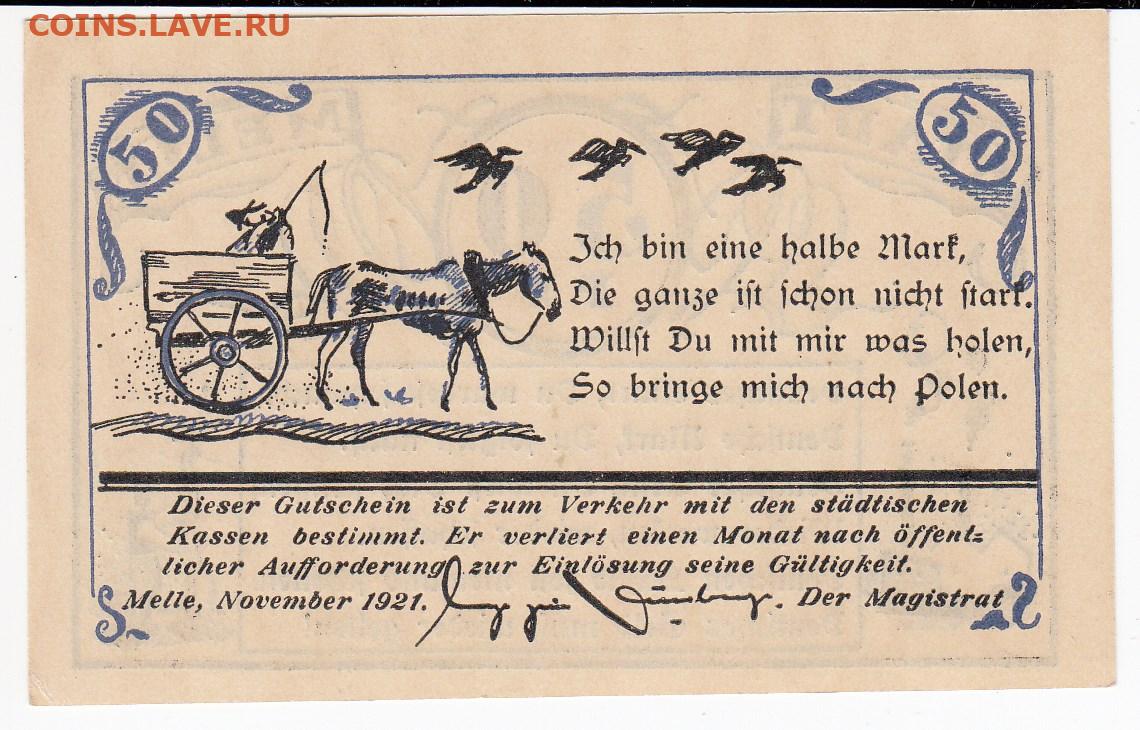 COINS.LAVE.RU
50
50
Ich bin eine halbe Mark,
Die ganze ist schon nicht stark.
Willst Du mit mir was holen,
So bringe mich nach Polen.
Dieser Gutschein ist zum Verkehr mit den städtischen
Kassen bestimmt. Er verliert einen Monat nach öffent-
licher Aufforderung zur Einlösung seine Gültigkeit.
Melle, November 1921. Der Magistrat